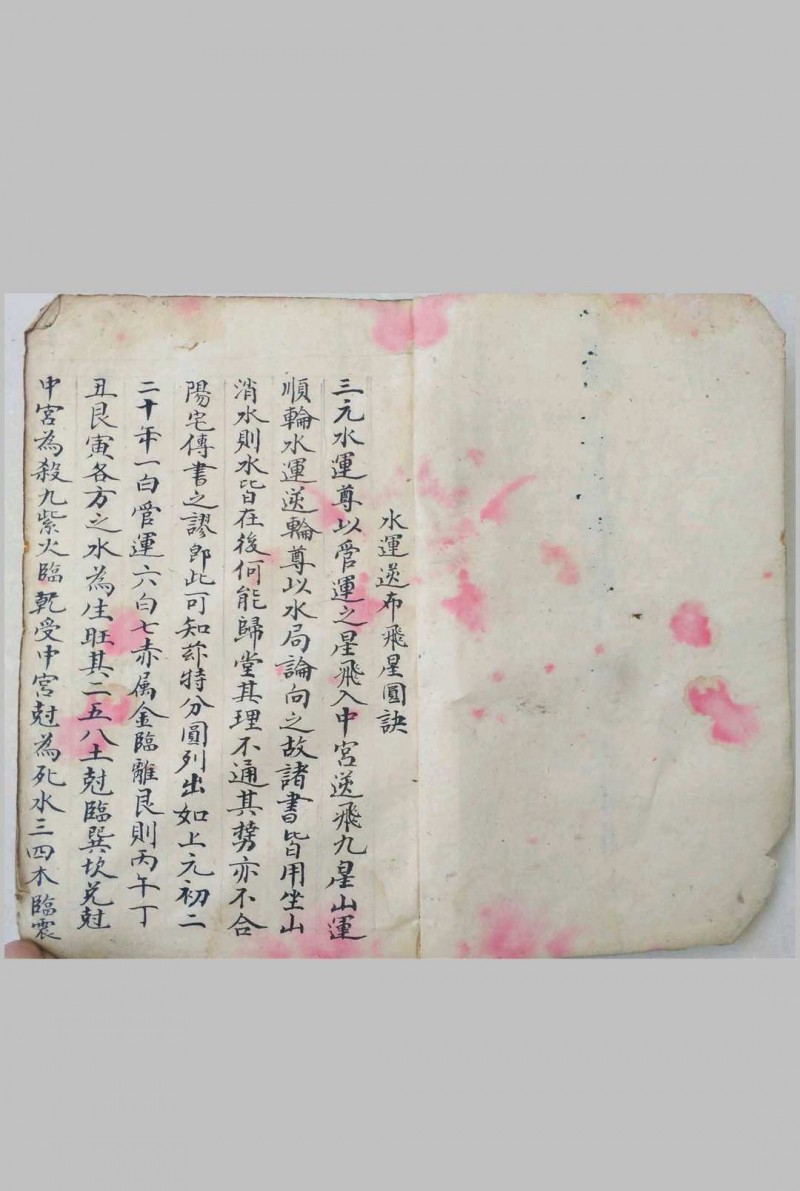 水運逆布飛星圓訣
三元水運專以管運之星飛入中宮逆飛九星山運
順輪水運逆輪專以水局論向之故諸書皆用坐山
消水則水皆在後何能歸堂其理不通其勢亦不合
陽宅傳書之謬即此可知茲特分圓列出如上元初二
二十年一白管運六白七赤属金臨離艮則丙午丁
丑艮寅各方之水為生旺其二五八土尅臨巽坎兑尅
中宮為殺九紫火臨乾受中宮尅為死水三四木臨震